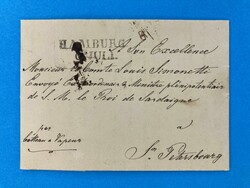 HAMBURG
JULI.
à Son Excellence
Monsieur le Comte Louis Simonette
Envoyé Extraordinaire & Ministre plénipotentiaire
de S. M. le Roi de Sardaigne
à
par
bateau à Vapeur
St. Petersbourg